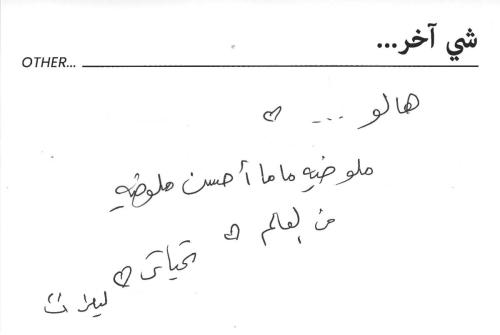 شي آخر...
OTHER...
هالو ... ♡
ملوخيه ماما أحسن ملوخيه
من العالم ♡
تحياتي ♡